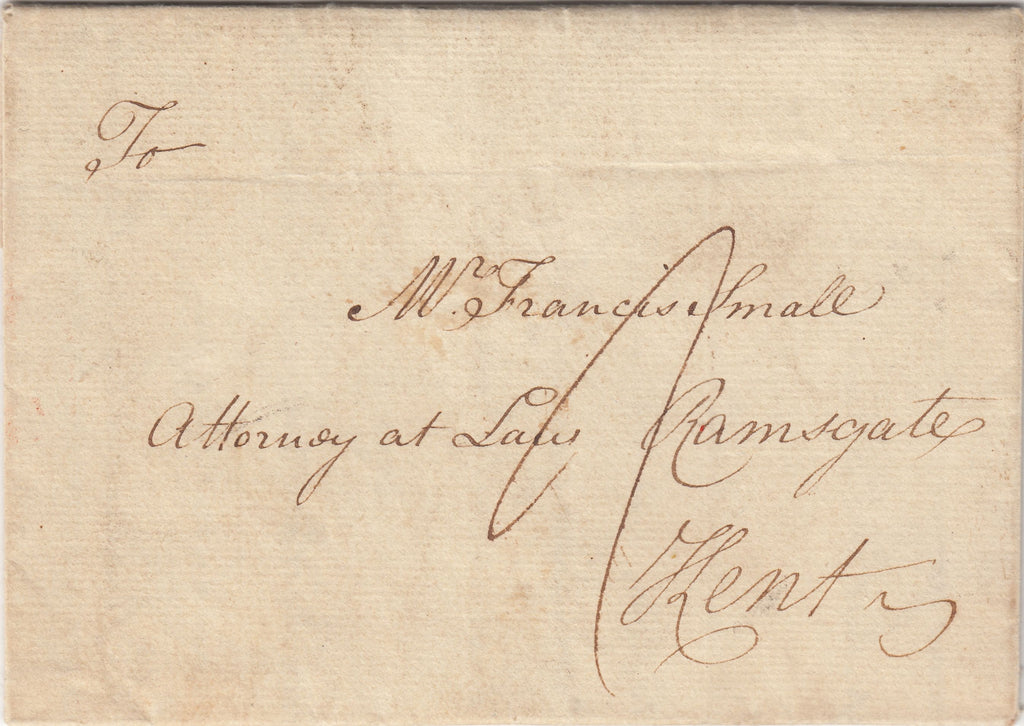 To
Mr. Francis Small
Attorney at Law Ramsgate
Kent